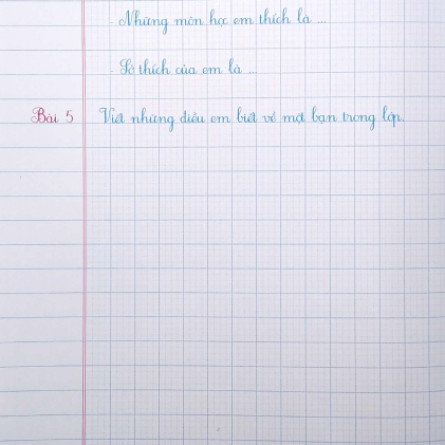 - Những môn học em thích là ...
- Sở thích của em là ...
Bài 5 Viết những điều em biết về một bạn trong lớp.